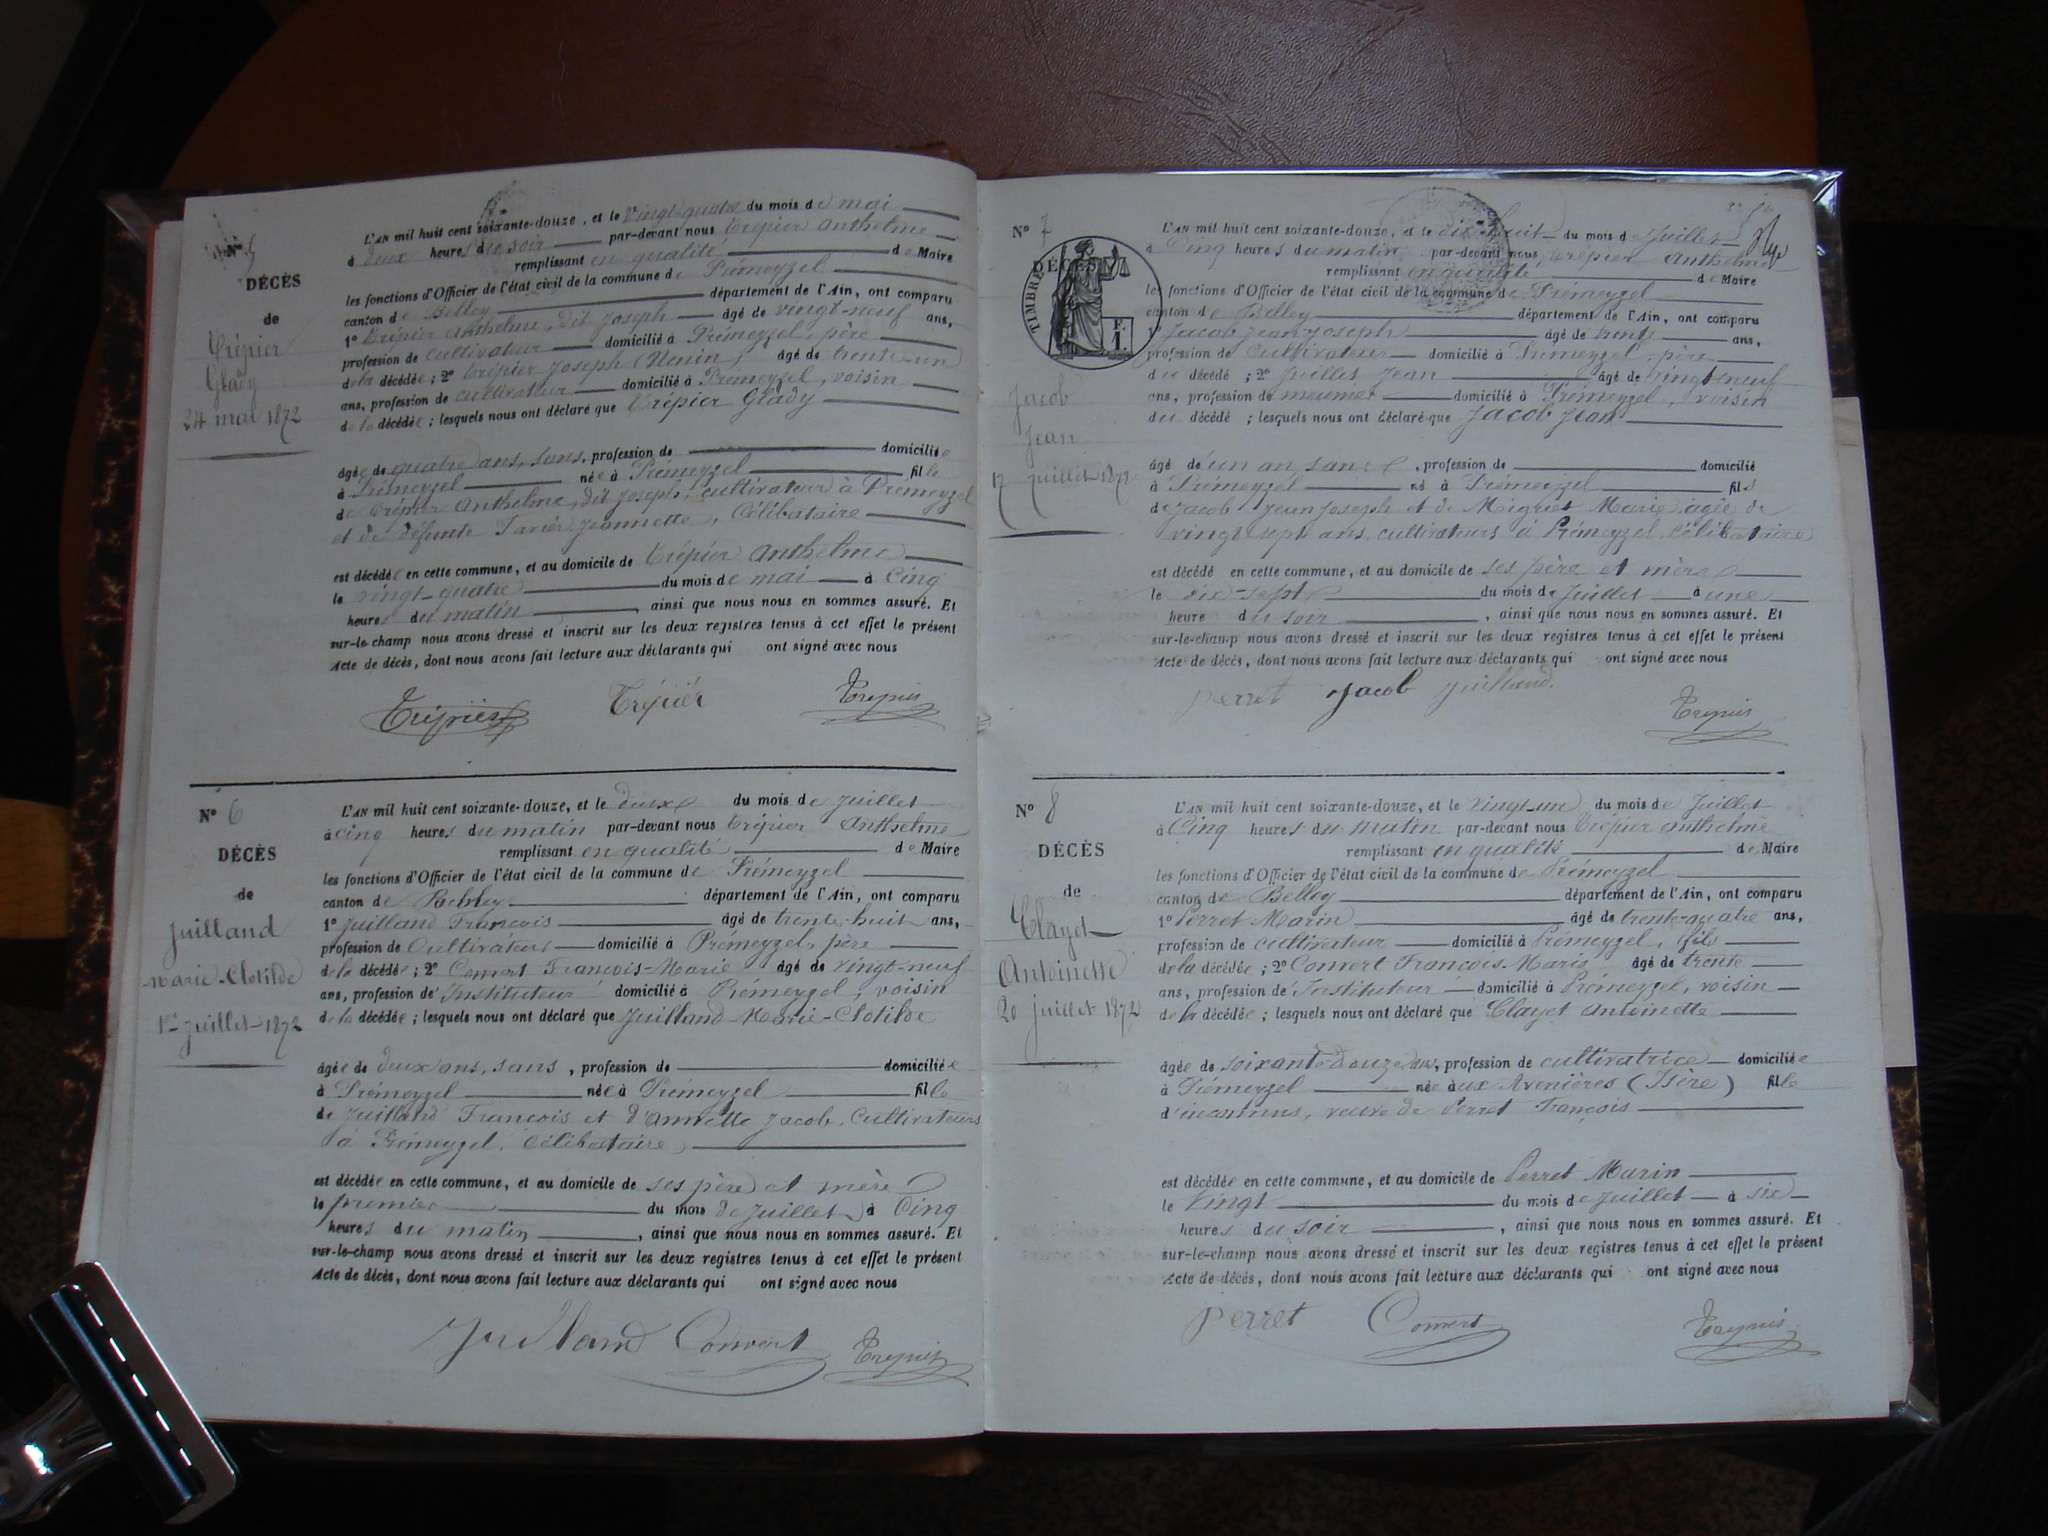 N° 5
DÉCÈS
de
Trépier
Glady
24 mai 1872
L'AN mil huit cent soixante-douze, et le vingt-quatre du mois de mai
à deux heures du soir par-devant nous Trépier Anthelme
remplissant en qualité de Maire
les fonctions d'Officier de l'état civil de la commune de Prémeyzel
canton de Belley département de l'Ain, ont comparu
1° Trépier Anthelme, dit Joseph âgé de vingt-neuf ans,
profession de cultivateur domicilié à Prémeyzel, père
de la décédée ; 2° Trépier Joseph âgé de trente-un
ans, profession de cultivateur domicilié à Prémeyzel, voisin
de la décédée ; lesquels nous ont déclaré que Trépier Glady
âgée de quatre ans, sans, profession de domiciliée
à Prémeyzel née à Prémeyzel fille
de Trépier Anthelme, dit Joseph, cultivateur à Prémeyzel
et de défunte Jeannette, Célibataire
est décédée en cette commune, et au domicile de Trépier Anthelme
le vingt-quatre du mois de mai à Cinq
heures du matin, ainsi que nous nous en sommes assuré. Et
sur-le-champ nous avons dressé et inscrit sur les deux registres tenus à cet effet le présent
Acte de décès, dont nous avons fait lecture aux déclarants qui ont signé avec nous
Trépier Trépier Trepier
N° 6
DÉCÈS
de
Juilland
Marie-Clotilde
1er Juillet 1872
L'AN mil huit cent soixante-douze, et le deux du mois de Juillet
à cinq heures du matin par-devant nous Trépier Anthelme
remplissant en qualité de Maire
les fonctions d'Officier de l'état civil de la commune de Prémeyzel
canton de Belley département de l'Ain, ont comparu
1° Juilland François âgé de trente-huit ans,
profession de Cultivateur domicilié à Prémeyzel, père
de la décédée ; 2° Convert François-Marie âgé de vingt-neuf
ans, profession d'Instituteur domicilié à Prémeyzel, voisin
de la décédée ; lesquels nous ont déclaré que Juilland Marie-Clotilde
âgée de deux ans, sans, profession de domiciliée
à Prémeyzel née à Prémeyzel fille
de Juilland François et d'Annette Jacob, Cultivateurs
à Prémeyzel. Célibataire
est décédée en cette commune, et au domicile de ses père et mère
le premier du mois de Juillet à Cinq
heures du matin, ainsi que nous nous en sommes assuré. Et
sur-le-champ nous avons dressé et inscrit sur les deux registres tenus à cet effet le présent
Acte de décès, dont nous avons fait lecture aux déclarants qui ont signé avec nous
Juilland Convert Trepier
N° 7
TIMBRE
DÉCÈS
F.
1.
Jacob
Jean
17 Juillet 1872
L'AN mil huit cent soixante-douze, et le dix-huit du mois de Juillet
à Cinq heures du matin par-devant nous Trépier Anthelme
remplissant en qualité de Maire
les fonctions d'Officier de l'état civil de la commune de Prémeyzel
canton de Belley département de l'Ain, ont comparu
1° Jacob Jean Joseph âgé de trente ans,
profession de Cultivateur domicilié à Prémeyzel, père
du décédé ; 2° Jean âgé de vingt-neuf
ans, profession de meunier domicilié à Prémeyzel, voisin
du décédé ; lesquels nous ont déclaré que Jacob Jean
âgé d'un an, sans, profession de domicilié
à Prémeyzel né à Prémeyzel fils
de Jacob Jean Joseph et de Marie âgée de
vingt-sept ans, cultivateurs à Prémeyzel, célibataire
est décédé en cette commune, et au domicile de ses père et mère
le dix-sept du mois de Juillet à une
heure du soir, ainsi que nous nous en sommes assuré. Et
sur-le-champ nous avons dressé et inscrit sur les deux registres tenus à cet effet le présent
Acte de décès, dont nous avons fait lecture aux déclarants qui ont signé avec nous
perret Jacob Juilland. Trepier
N° 8
DÉCÈS
de
Clayet
Antoinette
20 Juillet 1872
L'AN mil huit cent soixante-douze, et le vingt-un du mois de Juillet
à Cinq heures du matin par-devant nous Trépier Anthelme
remplissant en qualité de Maire
les fonctions d'Officier de l'état civil de la commune de Prémeyzel
canton de Belley département de l'Ain, ont comparu
1° Perret Marin âgé de trente-quatre ans,
profession de cultivateur domicilié à Prémeyzel, fils
de la décédée ; 2° Convert François-Marie âgé de trente
ans, profession d'Instituteur domicilié à Prémeyzel, voisin
de la décédée ; lesquels nous ont déclaré que Clayet Antoinette
âgée de soixante-douze ans, profession de cultivatrice domiciliée
à Prémeyzel née aux Avenières (Isère) fille
d'inconnus, veuve de Perret François
est décédée en cette commune, et au domicile de Perret Marin
le vingt du mois de Juillet à six
heures du soir, ainsi que nous nous en sommes assuré. Et
sur-le-champ nous avons dressé et inscrit sur les deux registres tenus à cet effet le présent
Acte de décès, dont nous avons fait lecture aux déclarants qui ont signé avec nous
perret Convert Trepier